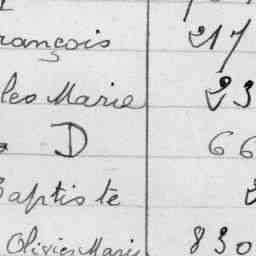 rançois 217
les Marie 23
D 66
Baptiste
Olivier Marie 830